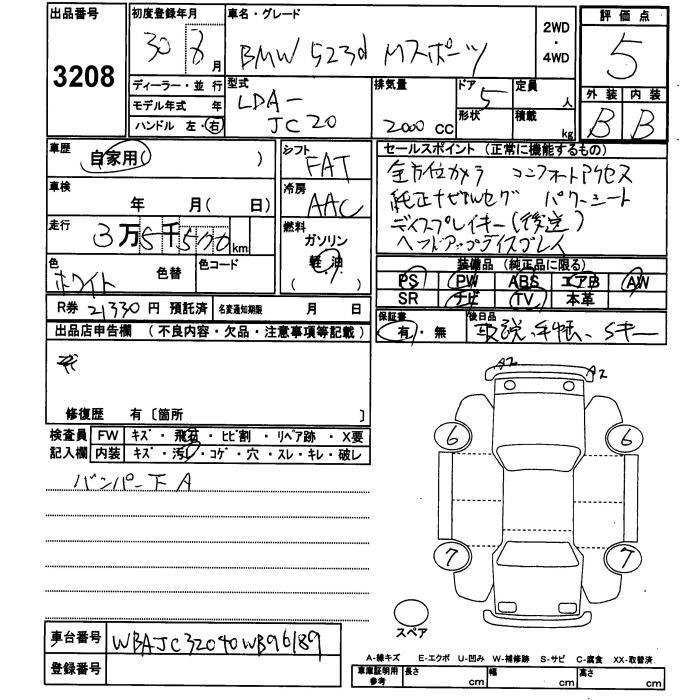 出品番号 3208
初度登録年月 30 8 月
車名・グレード BMW 523d Mスポーツ
2WD・4WD
評価点 5
ディーラー・並行
モデル年式 年
ハンドル 左・右
型式 LDA-JC20
排気量 2000 CC
ドア 5
形状
定員 人
積載 kg
外装 内装
B B
車歴 自家用( )
シフト FAT
セールスポイント (正常に機能するもの)
全方位カメラ コンフォートアクセス
純正ナビフルセグ パワーシート
ディスプレイキー(後送)
ヘッドアップディスプレイ
車検 年 月( 日)
冷房 AAC
走行 3万5千 km
燃料 ガソリン 軽油 ( )
色 ホワイト 色替
色コード
装備品 (純正品に限る)
PS PW ABS エアB AW
SR ナビ TV 本革
R券 21330 円 預託済
名変通知期限 月 日
保証書 有・無
後日品 取説、手帳、Sキー
出品店申告欄 (不良内容・欠品・注意事項等記載)
修復歴 有〔箇所 〕
A2 A2
検査員記入欄
FW キズ・飛石・ヒビ割・リペア跡・X要
内装 キズ・汚レ・コゲ・穴・スレ・キレ・破レ
バンパー下A
6 6
7 7
スペア
車台番号 WBAJC32040WB96189
登録番号
A-線キズ E-エクボ U-凹み W-補修跡 S-サビ C-腐食 XX-取替済
車庫証明用参考 長さ cm 幅 cm 高さ cm